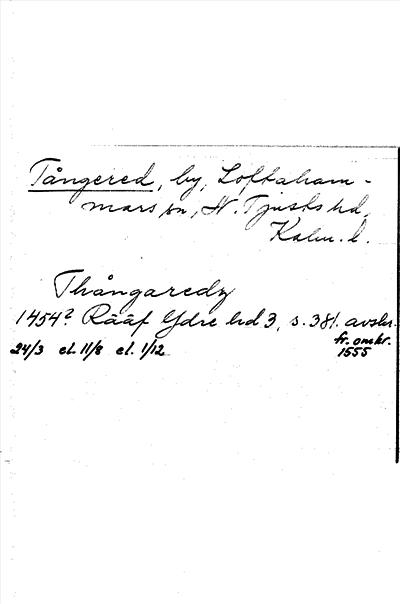 Tångered, by, Loftaham-
mars sn, N. Tjusts hd,
Kalm. l.
Thångaredz
1454? Rääf Ydre hd 3, s. 381. avskr.
fr. omkr.
1555
24/3 el. 11/8 el. 1/12